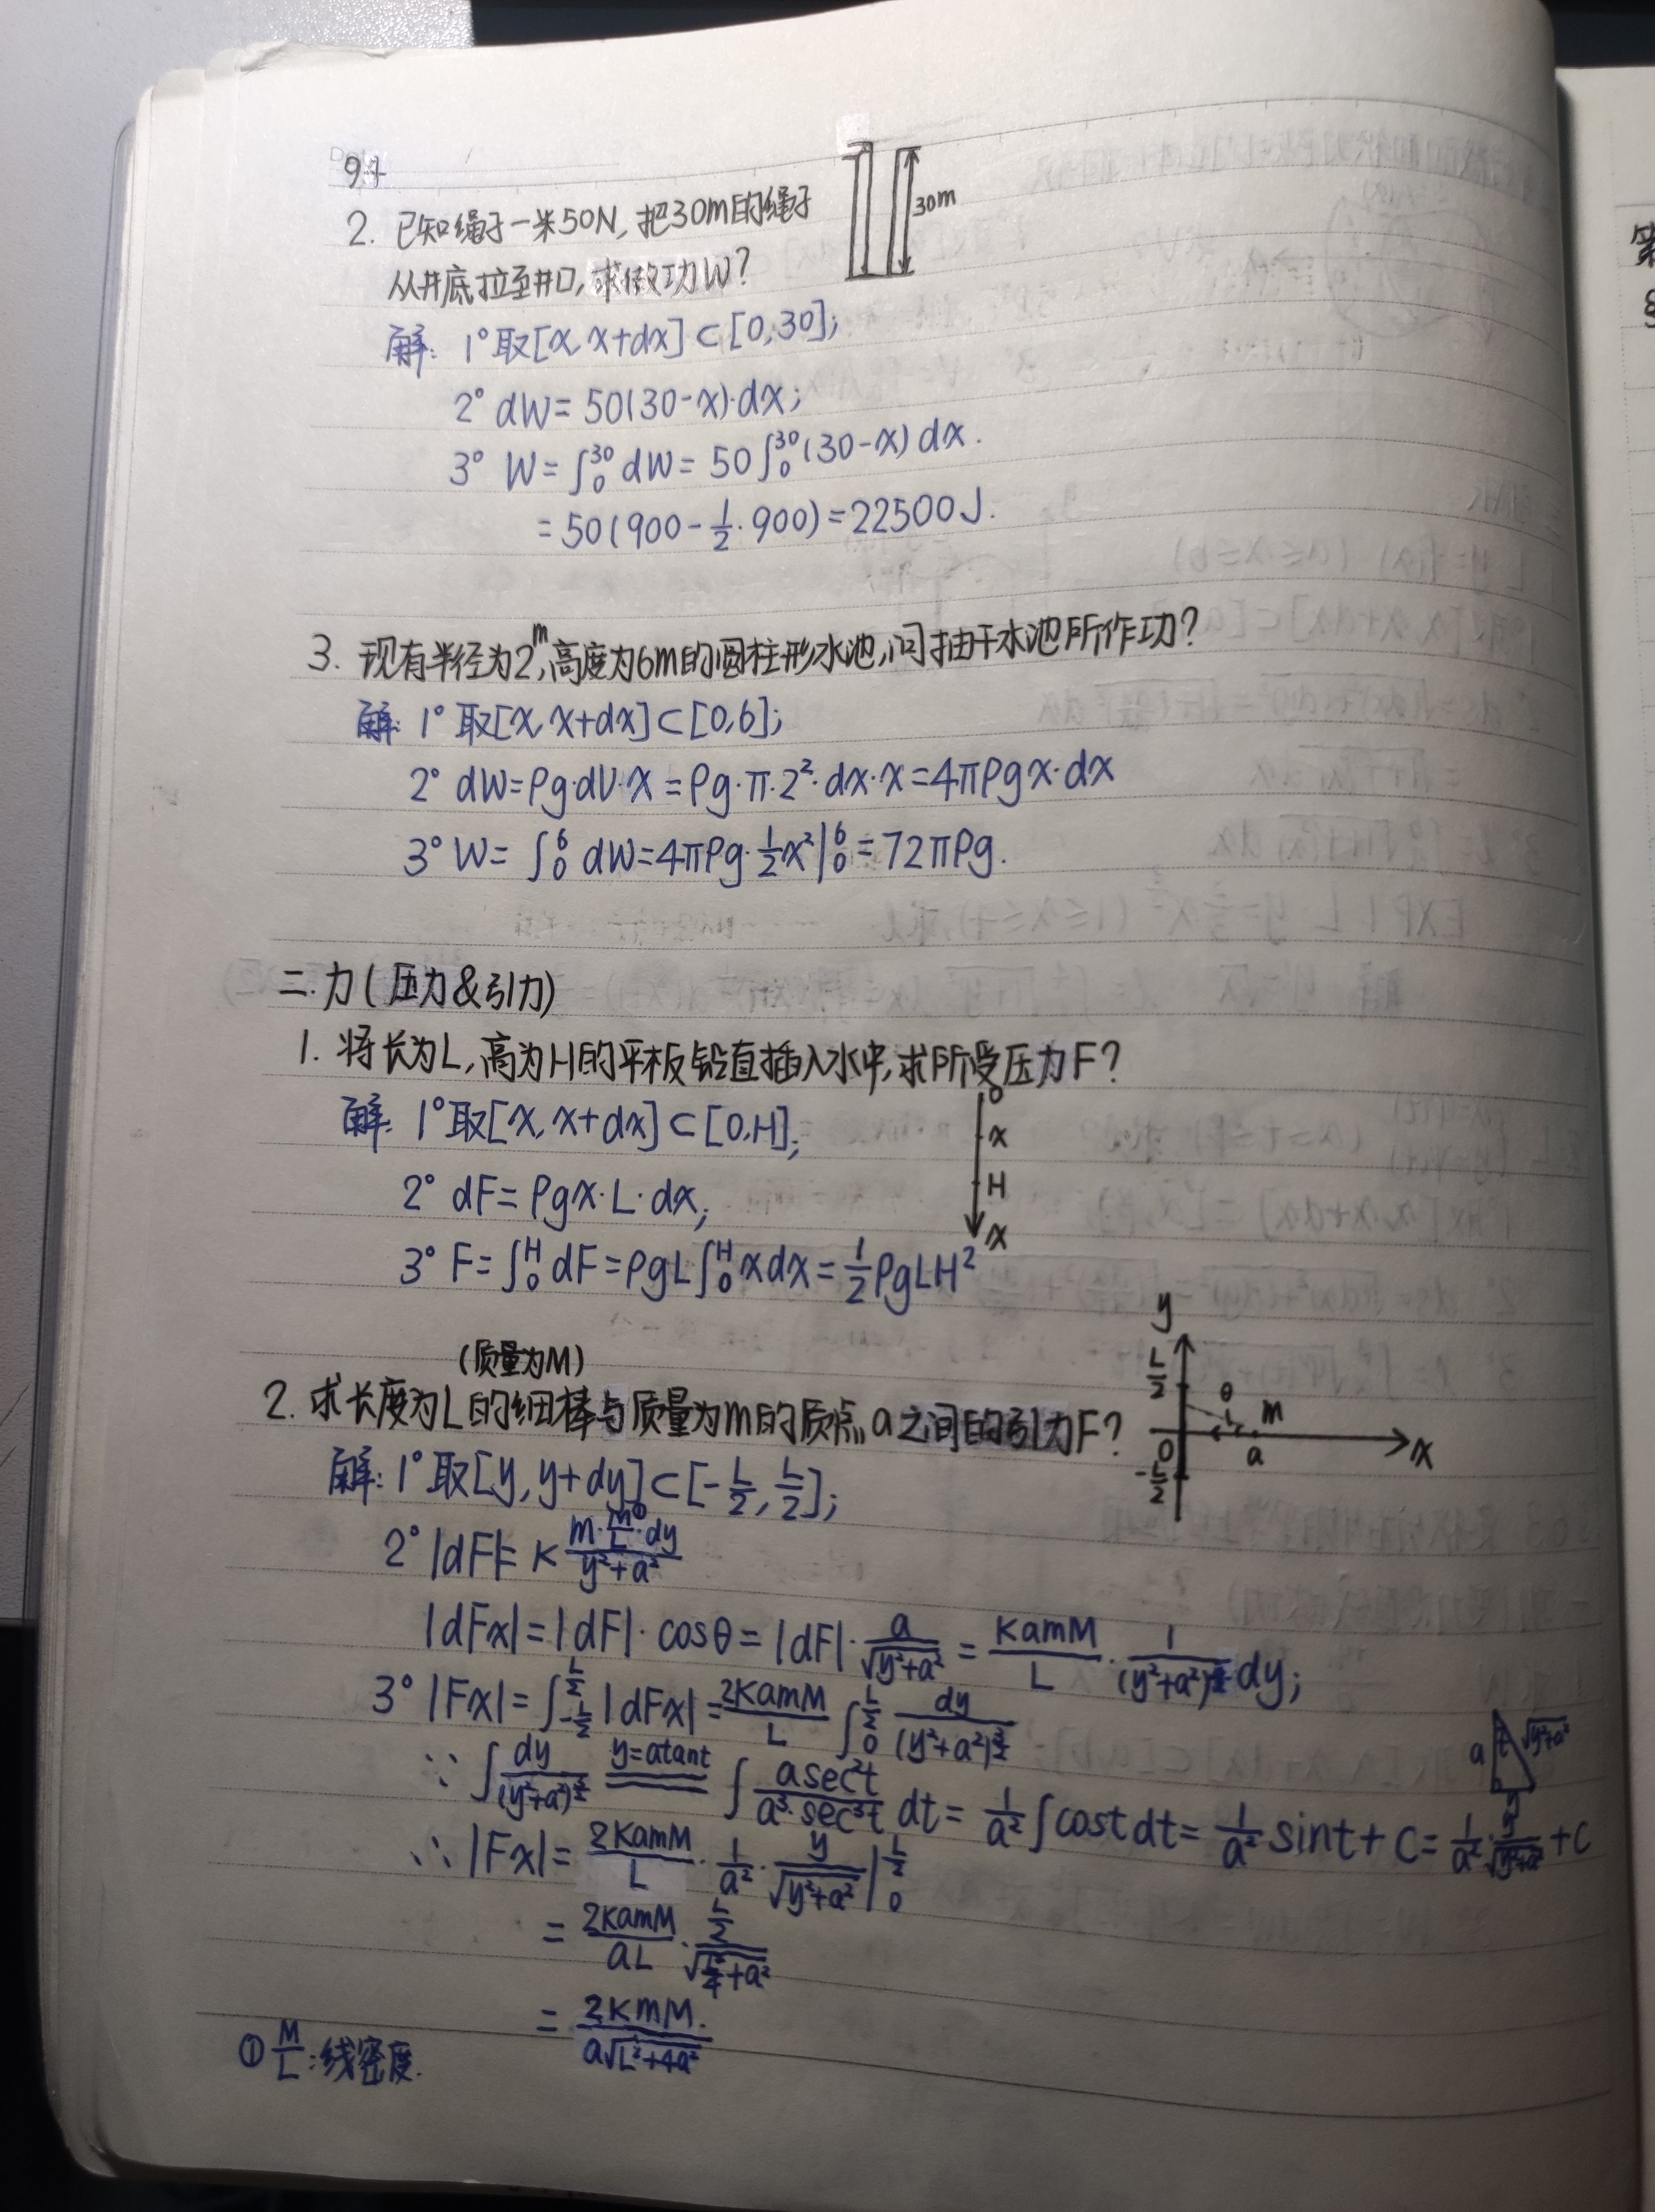 2. 已知绳子一米50N, 把30m的绳子
从井底拉至井口, 求做功W?
30m
解: 1° 取[x, x+dx]⊂[0,30];
2° dW=50(30-x)·dx;
3° W=∫₀³⁰dW=50∫₀³⁰(30-x)dx.
=50(900-1/2·900)=22500J.
3. 现有半径为2m,高度为6m的圆柱形水池,问抽干水池所作功?
解: 1° 取[x, x+dx]⊂[0,6];
2° dW=ρg·dV·x=ρg·π·2²·dx·x=4πρgx·dx
3° W=∫₀⁶dW=4πρg·1/2x²|₀⁶=72πρg.
二. 力(压力&引力)
1. 将长为L,高为H的平板铅直插入水中,求所受压力F?
0
x
H
x
解: 1° 取[x, x+dx]⊂[0,H];
2° dF=ρgx·L·dx;
3° F=∫₀ᴴdF=ρgL∫₀ᴴxdx=1/2ρgLH²
(质量为M)
2. 求长度为L的细棒与质量为m的质点a之间的引力F?
y
L/2
θ
m
0
a
x
-L/2
解: 1° 取[y, y+dy]⊂[-L/2, L/2];
2° |dF|=K (m·M/L①·dy)/(y²+a²)
|dFx|=|dF|·cosθ=|dF|·a/√(y²+a²)=KamM/L·1/(y²+a²)^(3/2)dy;
3° |Fx|=∫_(-L/2)^(L/2)|dFx|=2KamM/L∫₀^(L/2)dy/(y²+a²)^(3/2)
∵∫dy/(y²+a²)^(3/2) y=atant ∫asec²t/(a³·sec³t)dt=1/a²∫costdt=1/a²sint+C=1/a²·y/√(y²+a²)+C
a
t
√(y²+a²)
y
∴|Fx|=2KamM/L·1/a²·y/√(y²+a²)|₀^(L/2)
=2KamM/aL·(L/2)/√(L²/4+a²)
=2KmM/(a√(L²+4a²)).
①M/L:线密度.